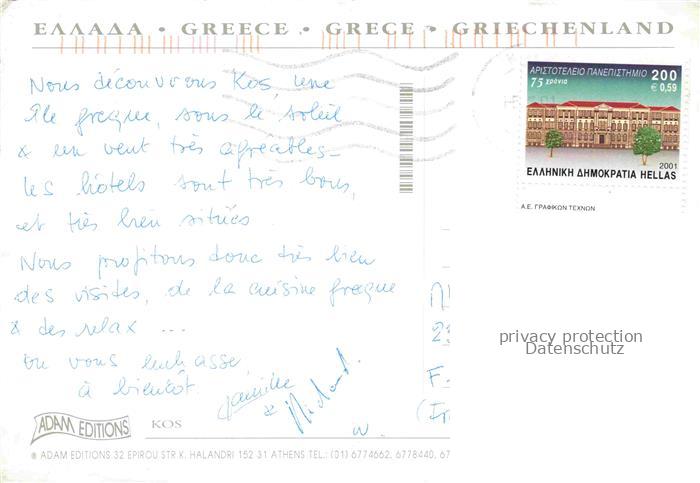 ΕΛΛΑΔΑ • GREECE • GRECE • GRIECHENLAND
Nous découvrons Kos une
île grecque, sous le soleil
& un vent très agréables_
Les hôtels sont très bons,
et très bien situés.
Nous profitons donc très bien
des visites, de la cuisine grecque
& des relax ...
on vous embrasse
à bientôt.
&
ΑΡΙΣΤΟΤΕΛΕΙΟ ΠΑΝΕΠΙΣΤΗΜΙΟ 200
75 χρόνια € 0,59
2001
ΕΛΛΗΝΙΚΗ ΔΗΜΟΚΡΑΤΙΑ HELLAS
Α.Ε. ΓΡΑΦΙΚΩΝ ΤΕΧΝΩΝ
privacy protection
Datenschutz
ADAM EDITIONS
KOS
ADAM EDITIONS 32 EPIROU STR.K. HALANDRI 152 31 ATHENS TEL.: (01) 6774662, 6778440, 67